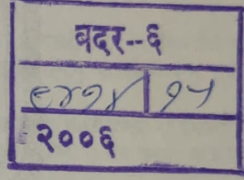 बदर--६
९४१४ | १५
२००६